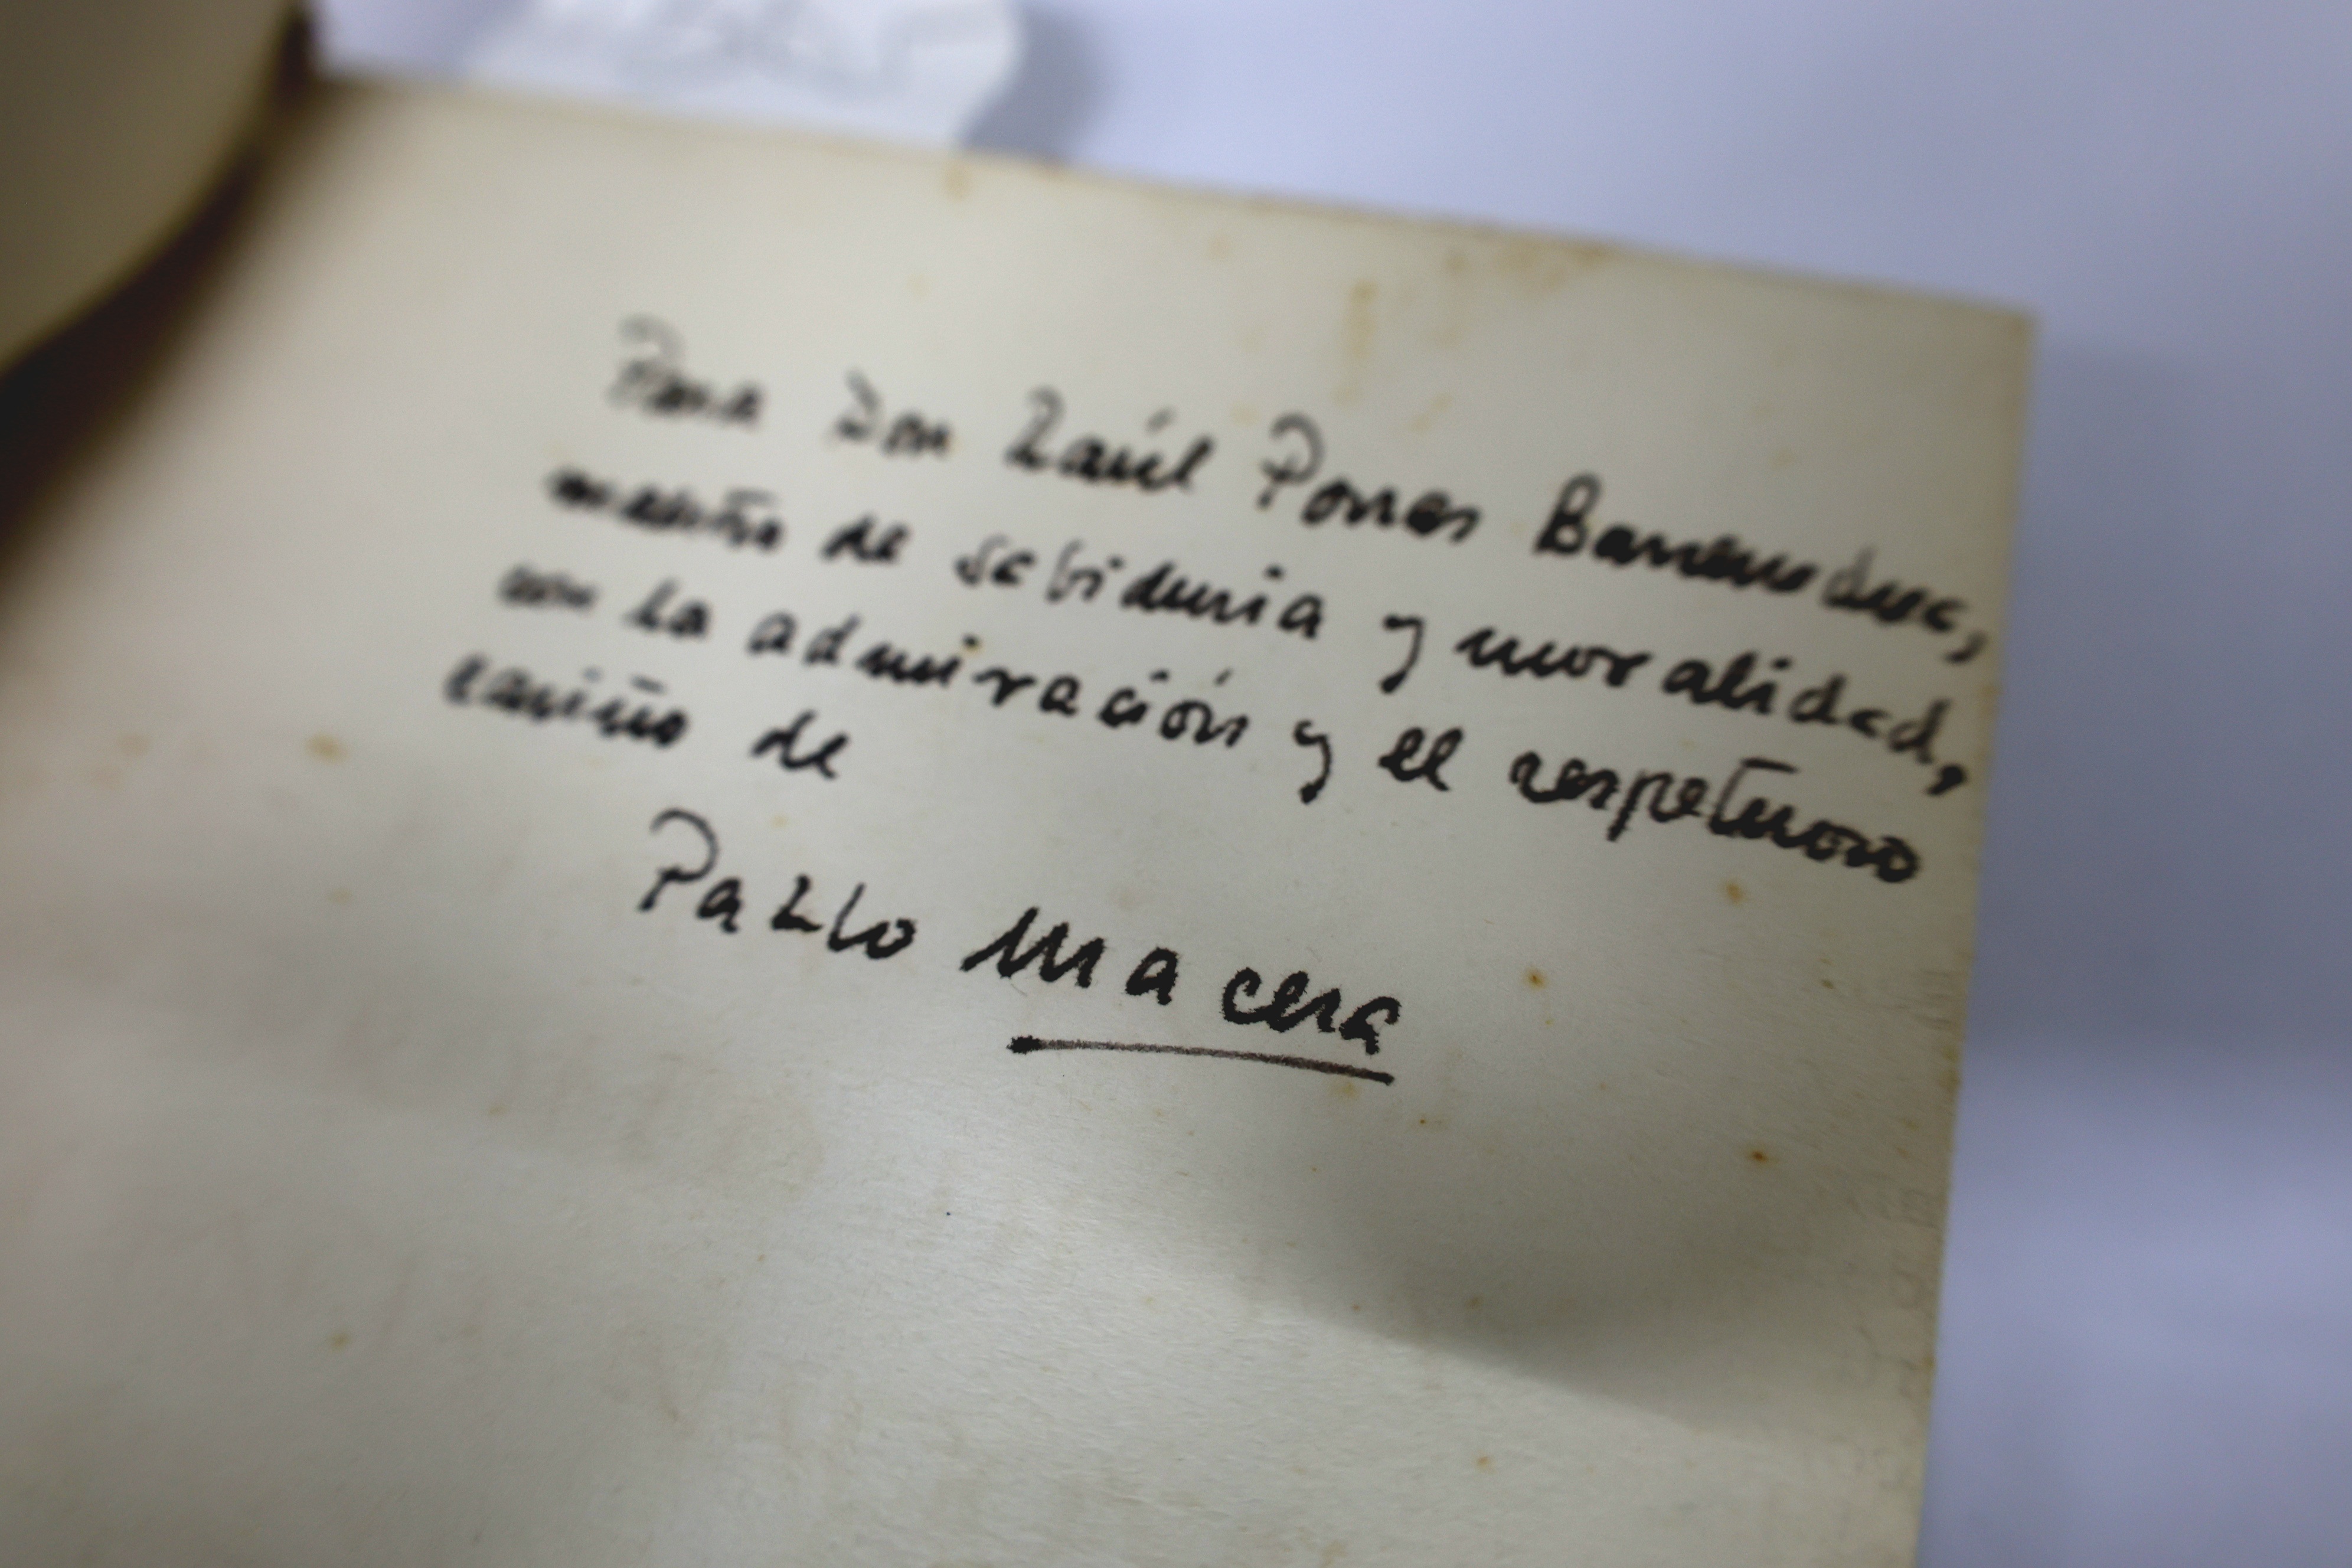 Para Don Raúl Porras Barrenechea,
maestro de sabiduria y moralidad,
con la admiración y el respetuoso
cariño de
Pablo Macera